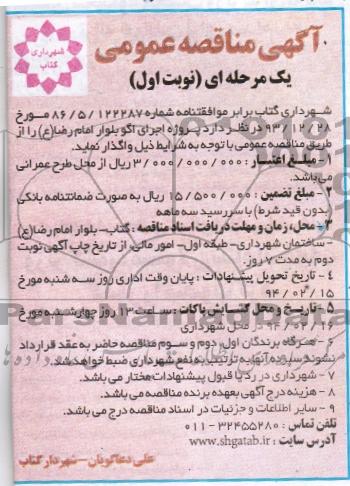 شهرداری
کتاب
آگهی مناقصه عمومی
یک مرحله ای (نوبت اول)
شهرداری گتاب برابر موافقتنامه شماره ۸۶/۵/۱۲۲۲۸۷ مورخ
۹۳/۱۲/۲۸ در نظر دارد پروژه اجرای اگو بلوار امام رضا(ع) را از
طریق مناقصه عمومی با توجه به شرایط ذیل واگذار نماید.
۱- مبلغ اعتبار : ۳/۰۰۰/۰۰۰/۰۰۰ ریال از محل طرح عمرانی
می باشد.
۲- مبلغ تضمین : ۱۵/۵۰۰/۰۰۰ ریال به صورت ضمانتنامه بانکی
(بدون قید شرط) با سررسید سه ماهه
۳- محل، زمان و مهلت دریافت اسناد مناقصه : گتاب- بلوار امام رضا(ع)
- ساختمان شهرداری- طبقه اول- امور مالی، از تاریخ چاپ آگهی نوبت
دوم به مدت ۷ روز.
۴- تاریخ تحویل پیشنهادات : پایان وقت اداری روز سه شنبه مورخ
۹۴/۰۲/۱۵
۵- تاریخ و محل گشایش پاکات : ساعت ۱۳ روز چهارشنبه مورخ
۹۴/۰۲/۱۶ در محل شهرداری
۶- هرگاه برندگان اول، دوم و سوم مناقصه حاضر به عقد قرارداد
نشوند سپرده آنها به ترتیب به نفع شهرداری ضبط خواهد شد.
۷- شهرداری در رد یا قبول پیشنهادات مختار می باشد.
۸- هزینه درج آگهی بعهده برنده مناقصه می باشد.
۹- سایر اطلاعات و جزئیات در اسناد مناقصه درج می باشد.
تلفن تماس : ۳۲۴۵۵۲۸۰-۰۱۱
آدرس سایت : www.shgatab.ir
علی دعاگویان- شهردار گتاب